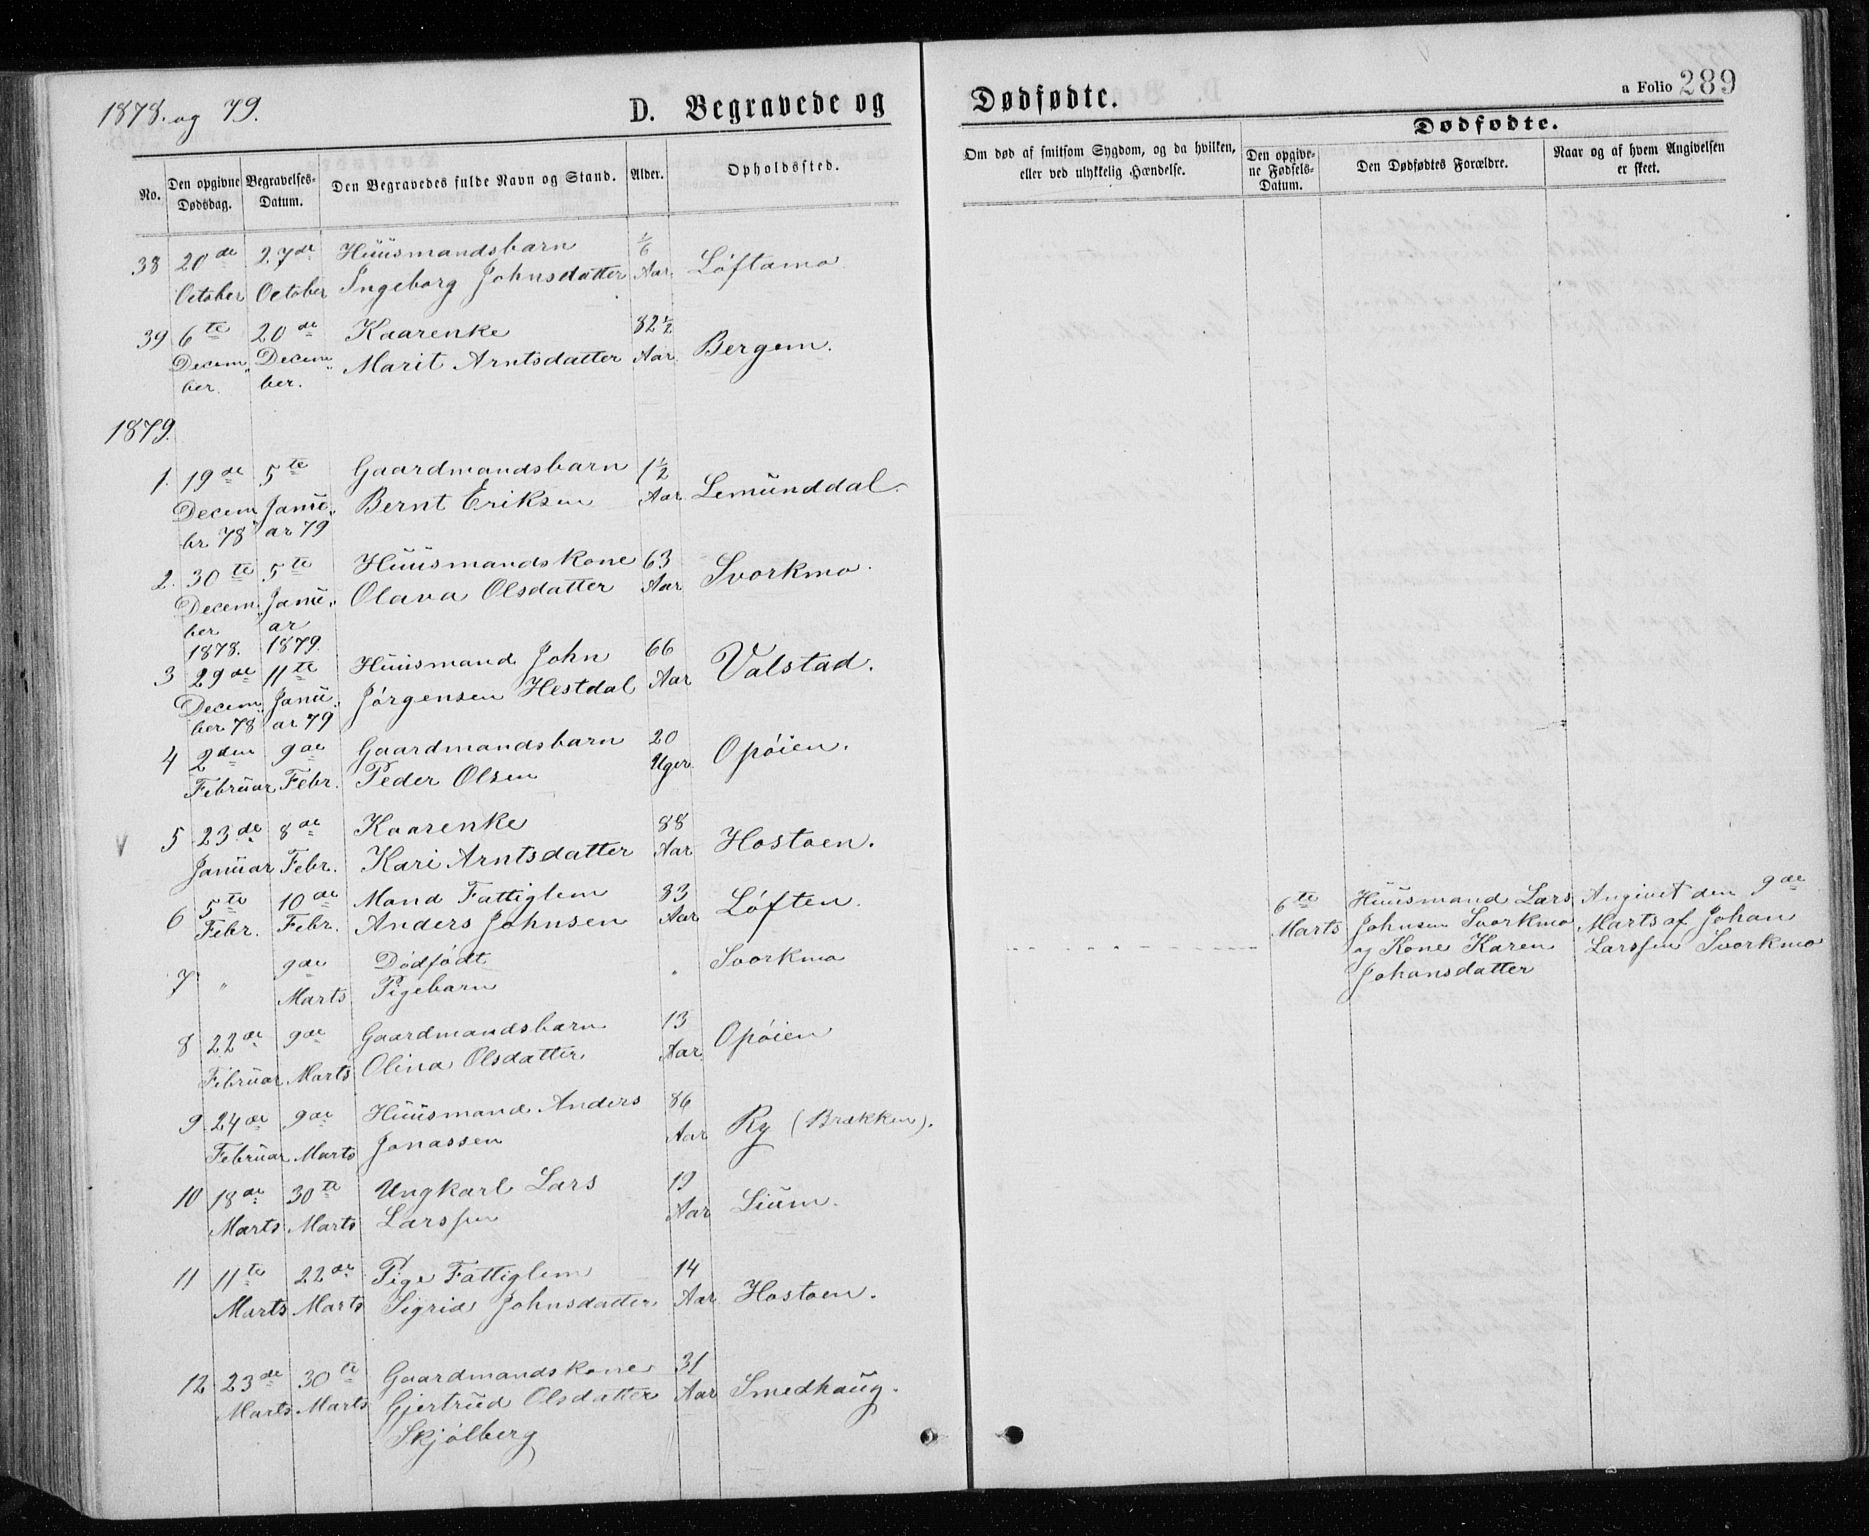 1878. og 79.
D. Begravede og
Dødfødte.
a Folio 289
Dødfødte.
No.
Den opgivne Dødsdag.
Begravelses-Datum.
Den Begravedes fulde Navn og Stand.
Alder.
Opholdssted.
Om død af smitsom Sygdom, og da hvilken,
eller ved ulykkelig Hændelse.
Den opgivne Fødsels-Datum.
Den Dødfødtes Forældre.
Naar og af hvem Angivelsen
er skeet.
38 20de 27de Huusmandsbarn 1/6 Løftamo
October October Ingeborg Johnsdatter Aar
39 6te 20de Kaarenke 82 1/2 Bergem.
Decem„ Decem„ Marit Arntsdatter Aar
ber ber.
1879.
1. 19de 5te Gaardmandsbarn 1 1/2 Lemunddal.
Decem Janu„ Bernt Eriksen Aar
br 78 ar 79
2. 30te 5te Huusmandskone 63 Svorkmo.
Decem„ Janu„ Olava Olsdatter Aar
ber ar
1878. 1879.
3 29de 11te Huusmand John 66 Valstad.
Decem„ Janu„ Jørgensen Hestdal Aar
ber 78 ar 79
4 2den 9de Gaardmandsbarn 20 Opøien.
Februar Febr. Peder Olsen Uger
5 23de 8de Kaarenke 88 Hostoen.
Januar Febr. Kari Arntsdatter Aar
6 5te 10de Mand Fattiglem 83 Løften.
Febr. Febr. Anders Johnsen Aar
7 „ 9de Dødfødt „ Svorkmo
Marts Pigebarn
6te Huusmand Lars Angivet den 9de
Marts Johnsen Svorkmo Marts af Johan
og Kone Karen Larssen Svorkmo
Johansdatter
8 22de 9de Gaardmandsbarn 13 Opøien
Februar Marts Olina Olsdatter Aar
9. 24de 9de Huusmand Anders 86 Ry (Brækken).
Februar Marts Jonassen Aar
10 18de 30te Ungkarl Lars 19 Lium.
Marts Marts Larssen Aar
11 11te 22de Pige Fattiglem 14 Hostoen.
Marts Marts Sigrid Johnsdatter Aar
12 23de 30te Gaardmandskone 31 Smedhaug.
Marts Marts Gjertrud Olsdatter Aar
Skjølberg